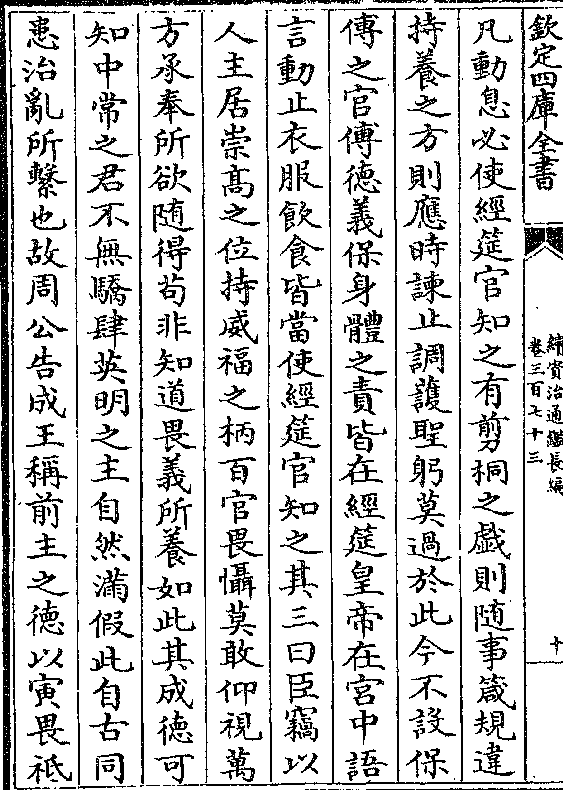 欽定四庫全書
續資治通鑑長編
卷三百七十三
十
凡動息必使經筵官知之有剪桐之戲則隨事箴規違
持養之方則應時諫止調護聖躬莫過於此今不設保
傅之官傅德義保身體之責皆在經筵皇帝在宫中語
言動止衣服飲食皆當使經筵官知之其三曰臣竊以
人主居崇髙之位持威福之柄百官畏懾莫敢仰視萬
方承奉所欲随得苟非知道畏義所養如此其成德可
知中常之君不無驕肆英明之主自然滿假此自古同
患治亂所繫也故周公告成王稱前主之德以寅畏祗